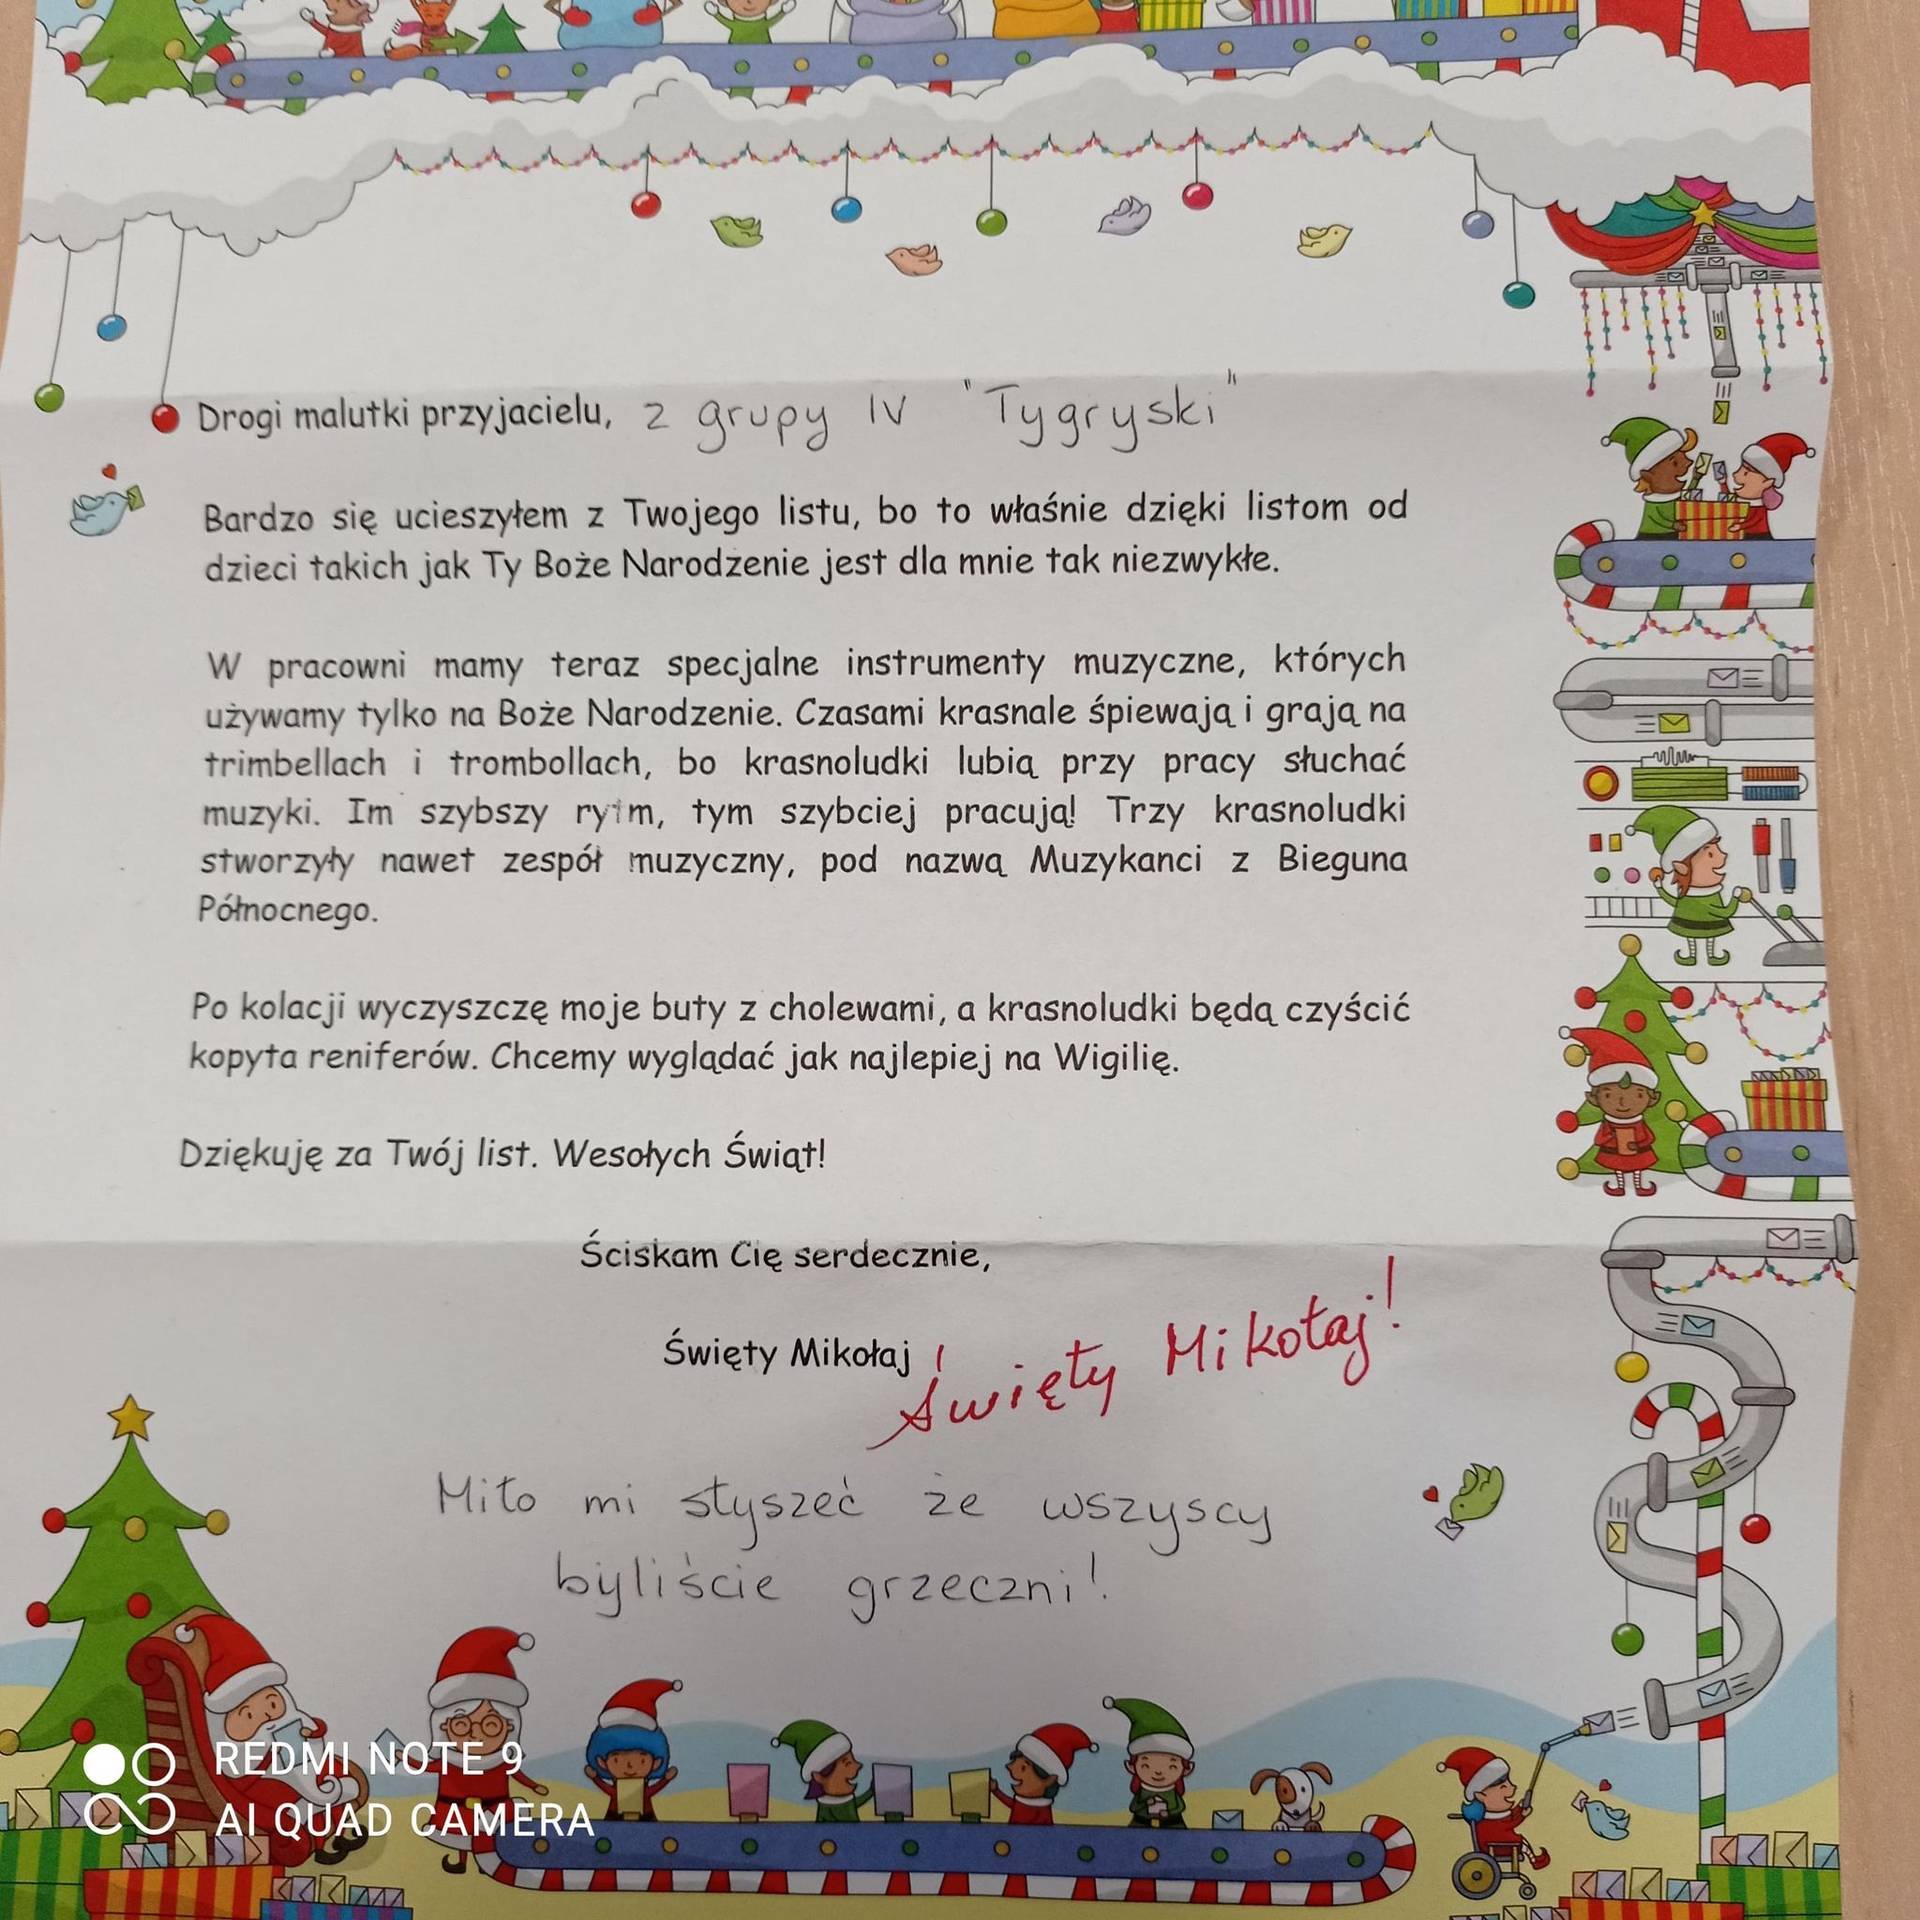 Drogi malutki przyjacielu, z grupy IV "Tygryski"
Bardzo się ucieszyłem z Twojego listu, bo to właśnie dzięki listom od
dzieci takich jak Ty Boże Narodzenie jest dla mnie tak niezwykłe.
W pracowni mamy teraz specjalne instrumenty muzyczne, których
używamy tylko na Boże Narodzenie. Czasami krasnale śpiewają i grają na
trimbellach i trombollach, bo krasnoludki lubią przy pracy słuchać
muzyki. Im szybszy rytm, tym szybciej pracują! Trzy krasnoludki
stworzyły nawet zespół muzyczny, pod nazwą Muzykanci z Bieguna
Północnego.
Po kolacji wyczyszczę moje buty z cholewami, a krasnoludki będą czyścić
kopyta reniferów. Chcemy wyglądać jak najlepiej na Wigilię.
Dziękuję za Twój list. Wesołych Świąt!
Ściskam Cię serdecznie,
Święty Mikołaj
Święty Mikołaj!
Miło mi słyszeć że wszyscy
byliście grzeczni!
REDMI NOTE 9
AI QUAD CAMERA